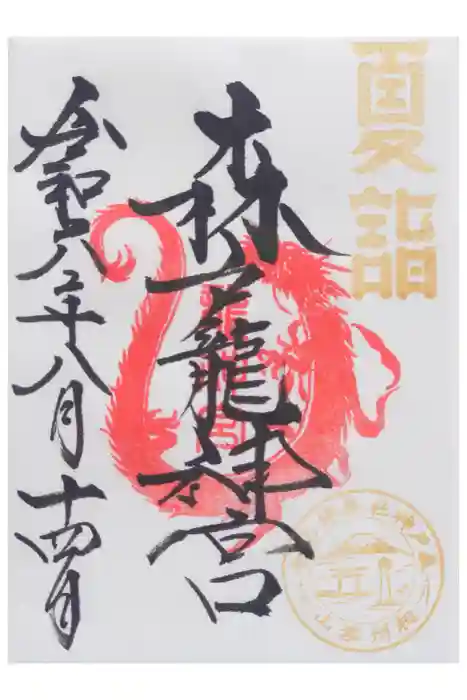 夏詣
森戸龍神宮
令和六年八月十四日